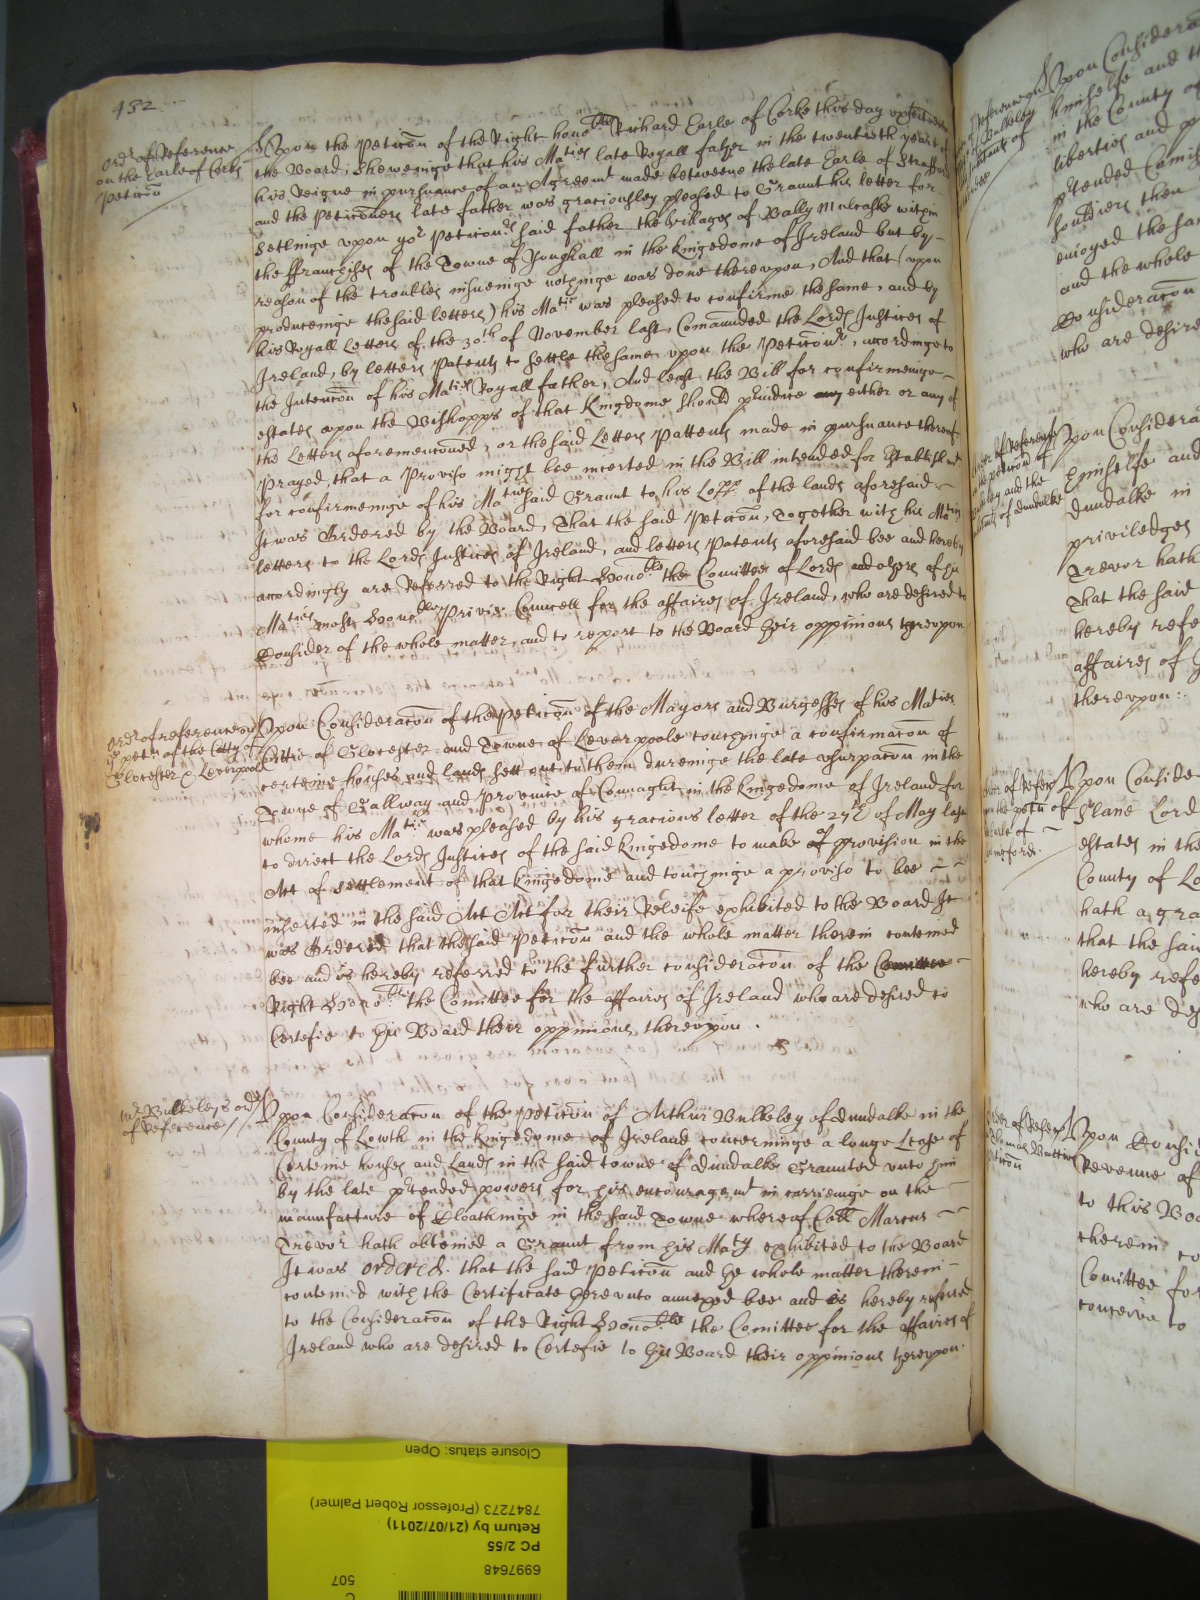 432
ord^r. of Reference
on the Earle of Corks
Petic̃on
Vpon the Petic̃on of the Right hono^ble Richard Earle of Corke this day
the Board, Shewinge that his Ma^ties late Royall father in the twentieth yeare of
his Reigne in pursuance of an Agreem^t made betweene the late Earle of Strafford
and the Petic̃oners late father was graciousley pleased to Graunt his letter for
Setlinge vpon yo^r Petic̃on^rs said father the villages of Bally Mulcaske within
the ffranchises of the Towne of Youghall in the kingedome of Ireland but by
reason of the troubles insueinge nothinge was done therevpon, And that (vpon
produceinge the said letters) his Ma^tie was pleased to confirme the same, and by
his Royall Letters of the 30^th of November last, Com̃aunded the Lords Justices of
Ireland, by letters Patents to settle the same vpon the Petic̃on^r, accordinge to
the Intenc̃on of his Ma^ties Royall father, And least the Bill for confirmeinge
estates vpon the Bishopps of that Kingdome should p^riudice any either or any of
the Letters aforementoned, or the said Letters Pattents made in pursuance thereof
Prayed, that a Proviso might bee incerted in the Bill intended for Establishm^t
for confirmeinge of his Ma^ties said Graunt to his Lo^pp. of the lands aforesaid
It was Ordered by the Board, That the said Petic̃on, Together with his Ma^ties
letters to the Lords Justices of Ireland, and letters Patents aforesaid bee and hereby
accordingly are Referred to the Right Hono^ble the Com̃ittee of Lords and others of his
Ma^ties most Hono^ble Privie Councell for the affaires of Ireland, who are desired to
Consider of the whole matter, and to report to the Board their oppinions therevpon
ord^r of reference on
y^e petn of the Citty of
Glocester & Leverpoole
Vpon Considerac̃on of the Petic̃on of the Mayors and Burgesses of his Ma^ties
Cittie of Glocester and Towne of Leverpoole touchinge a confirmac̃on of
certeine houses and lands sett out to them dureinge the late vsurpac̃on in the
Towne of Gallway and Province of Connaught in the kingedome of Ireland for
whome his Ma^tie was pleased by his gracious letter of the 27^th of May last
to direct the Lords Justices of the said kingedome to make a provision in the
Act of settlement of that kingedome and touchinge a proviso to bee
inserted in the said Act Act for their Releife exhibited to the Board It
was Ordered that the said Petic̃on and the whole matter therein conteined
bee and is hereby referred to the further considerac̃on of the Com̃ittee
Right Hono^ble the Com̃ittee for the affaires of Ireland who are desired to
Certefie to this Board their oppinions therevpon.
M^r Bulkeleys ord^r
of Reference
Vpon Considerac̃on of the petic̃on of Arthur Bulkeley of dundalke in the
County of Lowth in the kingedome of Ireland concerninge a longe Lease of
Certeine houses and Lands in the said towne of Dundalke Graunted vnto him
by the late p^rtended powers for his encouragem^t in carrieinge on the
manufacture of Cloathinge in the said Towne whereof Coll Marcus
Trevor hath obteined a Graunt from his Ma^ty exhibited to the Board
It was ordered. that the said Petic̃on and the whole matter therein
conteined with the Certificate herevnto annexed bee and is hereby referred
to the Considerac̃on of the Right Hono^ble the Com̃ittee for the affaires of
Ireland who are desired to Certefie to this Board their oppinions therevpon.
Vpon Considera
himselfe and th
in the County of
liberties and p
p^rtended
Souldiers then
enioyed the sa
and the whole
Considerac̃on
who are desire
Vpon Considera
himselfe and
Dundalke in
priviledges
Trevor hath
That the said
hereby refe
affaires of I
therevpon
Vpon Conside
Slane Lord
estates in the
County of Lo
hath a gra
that the said
hereby refe
who are des
Vpon Consid
Revenue of
to this Boa
therein co
Com̃ittee for
concerne to
Closure status: Open
7847273 (Professor Robert Palmer)
Return by (21/07/2011)
PC 2/55
6997648
507